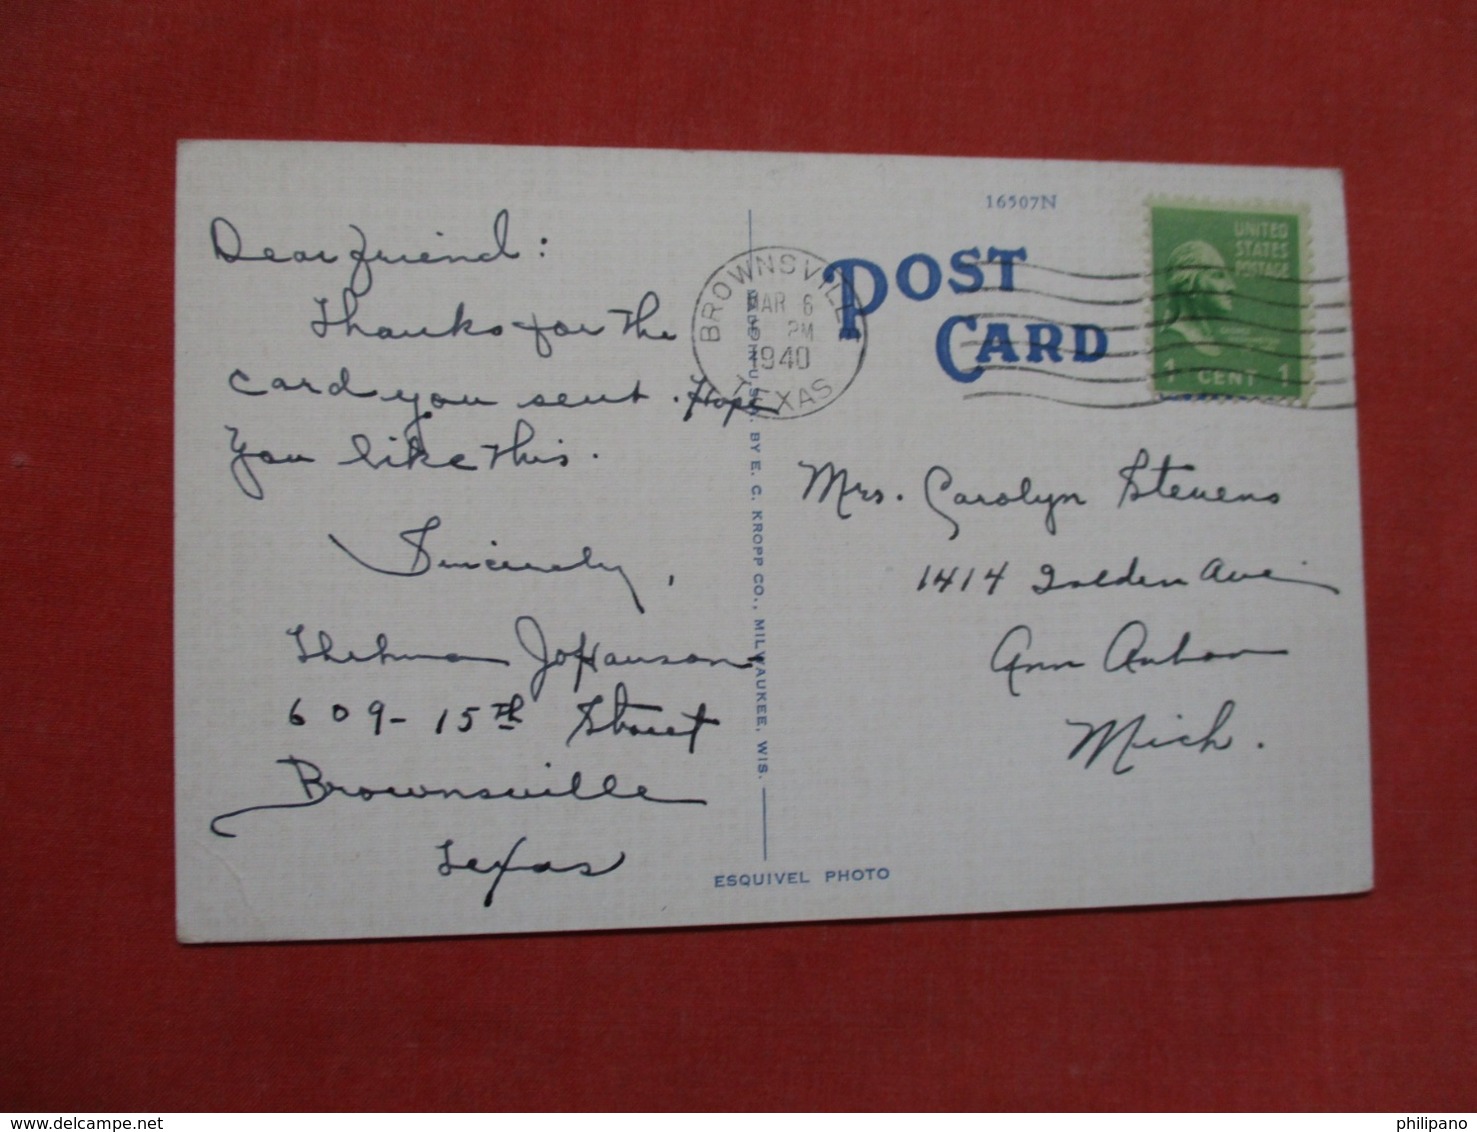 Dear friend:
Thanks for the
card you sent. Hope
you like this.
Sincerely,
Thelma JoHanson
609-15th Street
Brownsville
Texas
16507N
POST
CARD
BROWNSVILLE
MAR 6
PM
1940
TEXAS
UNITED
STATES
POSTAGE
1 CENT 1
Mrs. Carolyn Stevens
1414 Golden Ave.
Ann Arbor
Mich.
MADE IN U.S.A. BY E. C. KROPP CO., MILWAUKEE, WIS.
ESQUIVEL PHOTO
philipano